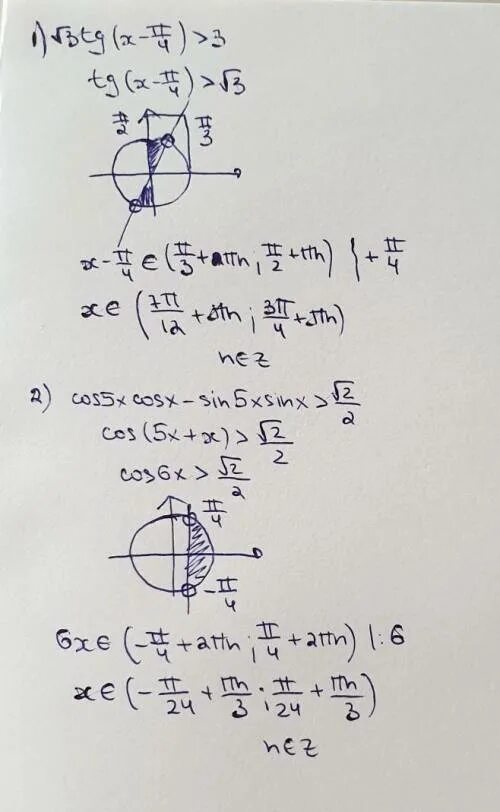 1) √3tg(x-π/4)>3
tg(x-π/4)>√3
π/2 π/3
x-π/4 ∈ (π/3+πn; π/2+πn) |+π/4
x∈ (7π/12+πn; 3π/4+πn)
n∈Z
2) cos5x cosx-sin5x sinx>√2/2
cos(5x+x)>√2/2
cos6x>√2/2
π/4
-π/4
6x∈ (-π/4+2πn; π/4+2πn) |:6
x∈ (-π/24+πn/3; π/24+πn/3)
n∈Z